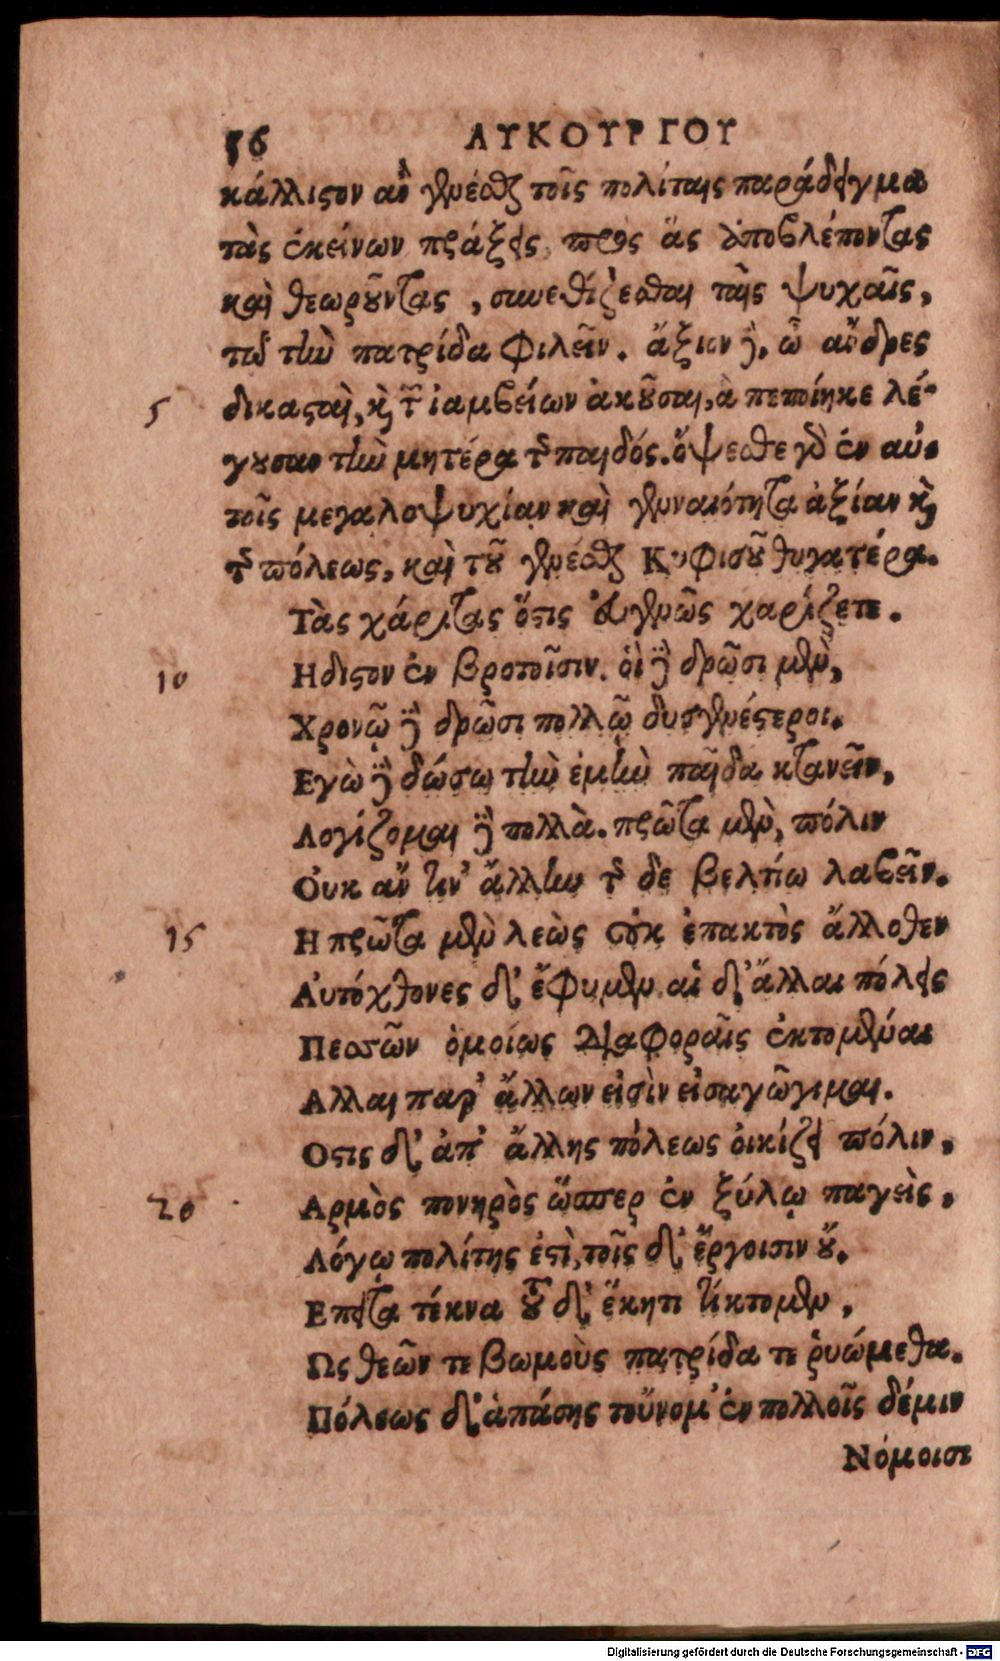 56 ΛΥΚΟΥΡΓΟΥ
κάλλιστον ἂν γενέσθαι τοῖς πολίταις παράδειγμα
τὰς ἐκείνων πράξεις, πρὸς ἃς ἀποβλέποντας
καὶ θεωροῦντας, συνεθίζεσθαι ταῖς ψυχαῖς,
τὸ τὴν πατρίδα φιλεῖν. ἄξιον δὲ, ὦ ἄνδρες
5 δικασταὶ, καὶ τῶν ἰαμβείων ἀκοῦσαι, ἃ πεποίηκε λέ-
γουσαν τὴν μητέρα τοῦ παιδός. ὄψεσθε γὰρ ἐν αὐ-
τοῖς μεγαλοψυχίαν καὶ γενναιότητα ἀξίαν καὶ
τῆς πόλεως, καὶ τοῦ γενέσθαι Κηφισοῦ θυγατέρα.
Τὰς χάριτας ὅστις εὐγενῶς χαρίζετε.
10 Ηδιστον ἐν βροτοῖσιν. οἱ δὲ δρῶσι μὲν,
Χρονῷ δὲ δρῶσι πολλῷ δυσγενέστεροι.
Εγὼ δὲ δώσω τὴν ἐμὴν παῖδα κτανεῖν,
Λογίζομαι δὲ πολλὰ. πρῶτα μὲν, πόλιν
Οὐκ ἄν τιν' ἄλλην τῆς δε βελτίω λαβεῖν.
15 Η πρῶτα μὲν λεὼς οὐκ ἐπακτὸς ἄλλοθεν
Αὐτόχθονες δ' ἔφυμεν αἱ δ' ἄλλαι πόλεις
Πεσσῶν ὁμοίως διαφοραῖς ἐκτομέναι
Αλλαι παρ' ἄλλων εἰσὶν εἰσαγῶγιμαι.
Οστις δ' ἀπ' ἄλλης πόλεως οἰκίζει πόλιν,
20 Αρμὸς πονηρὸς ὥσπερ ἐν ξύλῳ παγεὶς,
Λόγῳ πολίτης ἐστὶ, τοῖς δ' ἔργοισιν οὔ.
Επειτα τέκνα τοῦ δ' ἕκητι τίκτομεν,
Ως θεῶν τε βωμοὺς πατρίδα τε ῥυώμεθα.
Πόλεως δ' ἁπάσης τοὔνομ' ἐν πολλοῖς δέμιν
Νόμοισι
Digitalisierung gefördert durch die Deutsche Forschungsgemeinschaft - DFG